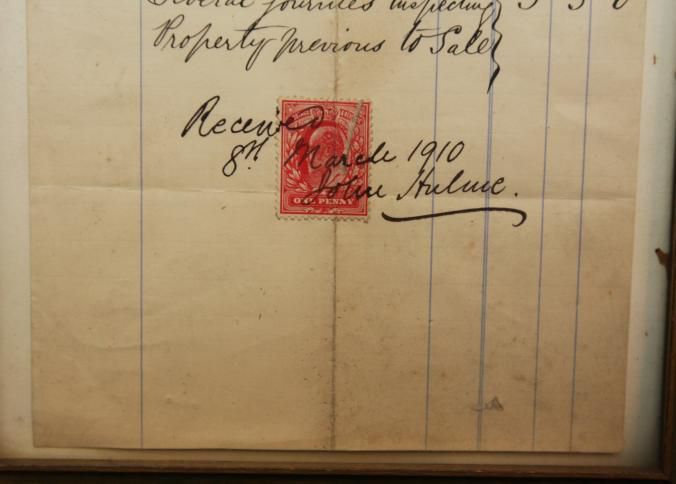 Several journies inspecting } 3 3 0
Property previous to Sale
Received
8th March 1910
John Hulme.
ONE PENNY